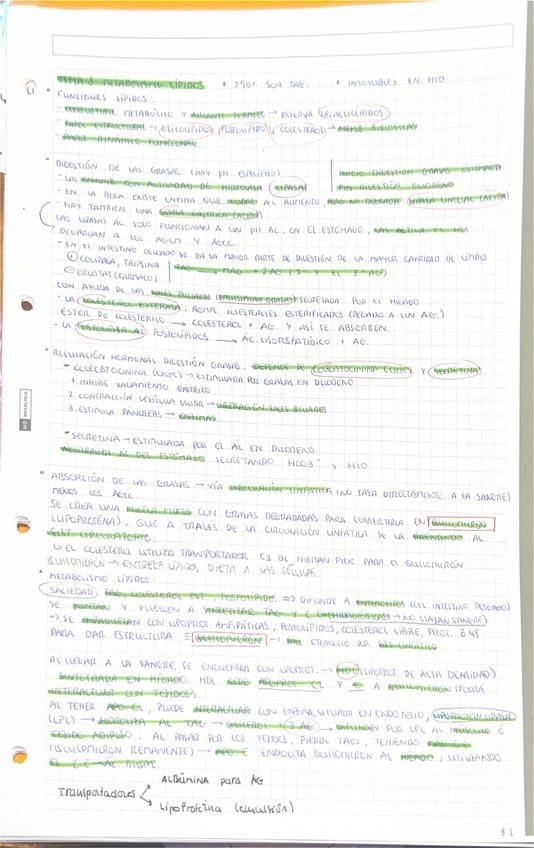 TEMA 8 METABOLISMO LÍPIDOS * >90% SON TAG. * INSOLUBLES EN H2O
FUNCIONES LÍPIDOS:
- COMBUSTIBLE METABÓLICO Y AISLANTE TÉRMICO → RESERVA (TRIACILGLICÉRIDOS)
- PAPEL ESTRUCTURAL → GLICOLÍPIDOS, FOSFOLÍPIDOS, COLESTEROL → MEMB BIOLÓGICAS
- PAPEL DINÁMICO FUNCIONAL
DIGESTIÓN DE LAS GRASAS (HAY PH ESPECÍFICO)
INICIO DIGESTIÓN GRASAS ESTÓMAGO
FIN DIGESTIÓN DUODENO
- LAS ENZIMAS CON ACTIVIDAD DE HIDROLASA (LIPASA)
- EN LA BOCA EXISTE ENZIMA QUE AL ALIMENTO, LIPASA LINGUAL (ÁCIDA)
- HAY TAMBIÉN UNA LIPASA GÁSTRICA (ÁCIDA)
LAS LIPASAS AL SOLO FUNCIONAN A UN PH AC. EN EL ESTÓMAGO, LAS ACTIVA EL HCl
DEGRADAN A LOS AGCM Y AGCC.
- EN EL INTESTINO DELGADO SE DA LA MAYOR PARTE DE DIGESTIÓN DE LA MAYOR CANTIDAD DE LÍPIDOS
① COLIPASA, TRIPSINA
② ORLISTAT (FÁRMACO)
TAG → MAG 2-AG (1 Y EL 3 AG)
CON AYUDA DE LAS SALES BILIARES (EMULSIFICAN GRASAS) SECRETADA POR EL HÍGADO
- LA COLESTEROL ESTERASA: ROMPE COLESTEROLES ESTERIFICADOS (PEGADO A UN AG.)
ÉSTER DE COLESTERILO → COLESTEROL + AG. Y ASÍ SE ABSORBEN.
- LA FOSFOLIPASA A2: FOSFOLÍPIDOS → AC. LISOFOSFATÍDICO + AG.
REGULACIÓN HORMONAL DIGESTIÓN GRASAS. DEPENDE DE COLECISTOCININA (CCK) Y SECRETINA
* COLECISTOCININA (CCK) → ESTIMULADA POR GRASAS EN DUODENO
1. INHIBE VACIAMIENTO GÁSTRICO
2. CONTRACCIÓN VESÍCULA BILIAR → LIBERACIÓN SALES BILIARES
3. ESTIMULA PÁNCREAS → ENZIMAS
* SECRETINA → ESTIMULADA POR EL ÁC EN DUODENO
NEUTRALIZA AC DEL ESTÓMAGO SECRETANDO HCO3⁻ Y H2O
ABSORCIÓN DE LAS GRASAS → VÍA CIRCULACIÓN LINFÁTICA (NO PASA DIRECTAMENTE A LA SANGRE)
MENOS LOS AGCC.
SE CREA UNA MICELA MIXTA CON GRASAS DEGRADADAS PARA CONVERTIRLA EN QUILOMICRÓN
(LIPOPROTEÍNA), QUE A TRAVÉS DE LA CIRCULACIÓN LINFÁTICA SE VA DRENANDO AL
SIST CIRCULATORIO.
↳ EL COLESTEROL UTILIZA TRANSPORTADOR C2 DE NIEMAN PICK PARA EL QUILOMICRÓN
QUILOMICRÓN → ENTREGA LÍPIDOS DIETA A LAS CÉLULAS.
METABOLISMO LÍPIDOS:
SACIEDAD TAG, COLESTEROL EST., FOSFOLÍPIDO. => DIFUNDE A ENTEROCITOS (CÉL. INTESTINO DELGADO)
SE Y VUELVEN A → NO VIAJAN SANGRE)
=> SE EMPAQUETAN CON LIPOPROT. ANFIPÁTICAS, FOSFOLÍPIDOS, COLESTEROL LIBRE, PROT. B48
PARA DAR ESTRUCTURA = QUILOMICRÓN → SIST LINFÁTICO
AL LLEGAR A LA SANGRE, SE ENCUENTRA CON LIPOPROT. → HDL (LIPOPROT. DE ALTA DENSIDAD)
SINTETIZADA EN HÍGADO. HDL CEDE APOPROT C2 Y E A QUILOMICRÓN (PODRÁ
INTERACTUAR CON TEJIDOS).
AL TENER APO C2, PUEDE INTERACTUAR CON ENZIMA SITUADA EN ENDOTELIO, LIPOPROTEÍN LIPASA
(LPL) → HIDROLIZA AL TAG → GLICEROL + 3 AG → DIFUNDEN POR LPL AL MÚSCULO O
TEJIDO ADIPOSO. AL PASAR POR LOS TEJIDOS, PIERDE TAGS, TENIENDO MÁS C E
(QUILOMICRÓN REMANENTE) → APO E ENDOCITA QUILOMICRÓN AL HÍGADO, UTILIZANDO
EL C E → ÁC. BILIAR.
Transportadores
ALBÚMINA para AG
LIPOPROTEÍNA (emulsión)
8.1